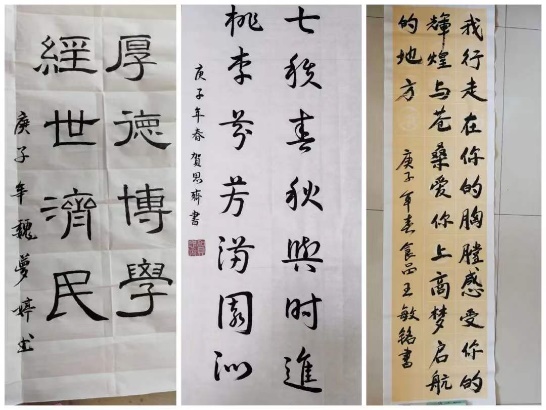 厚德博學
經世濟民
庚子年魏夢婷书
七秩春秋與时進
桃李芬芳满園沁
庚子年春賀思齊書
我行走在你的胸膛感受你的
輝煌与苍桑爱你上商梦启航
的地方
庚子年春食品王敏铭書